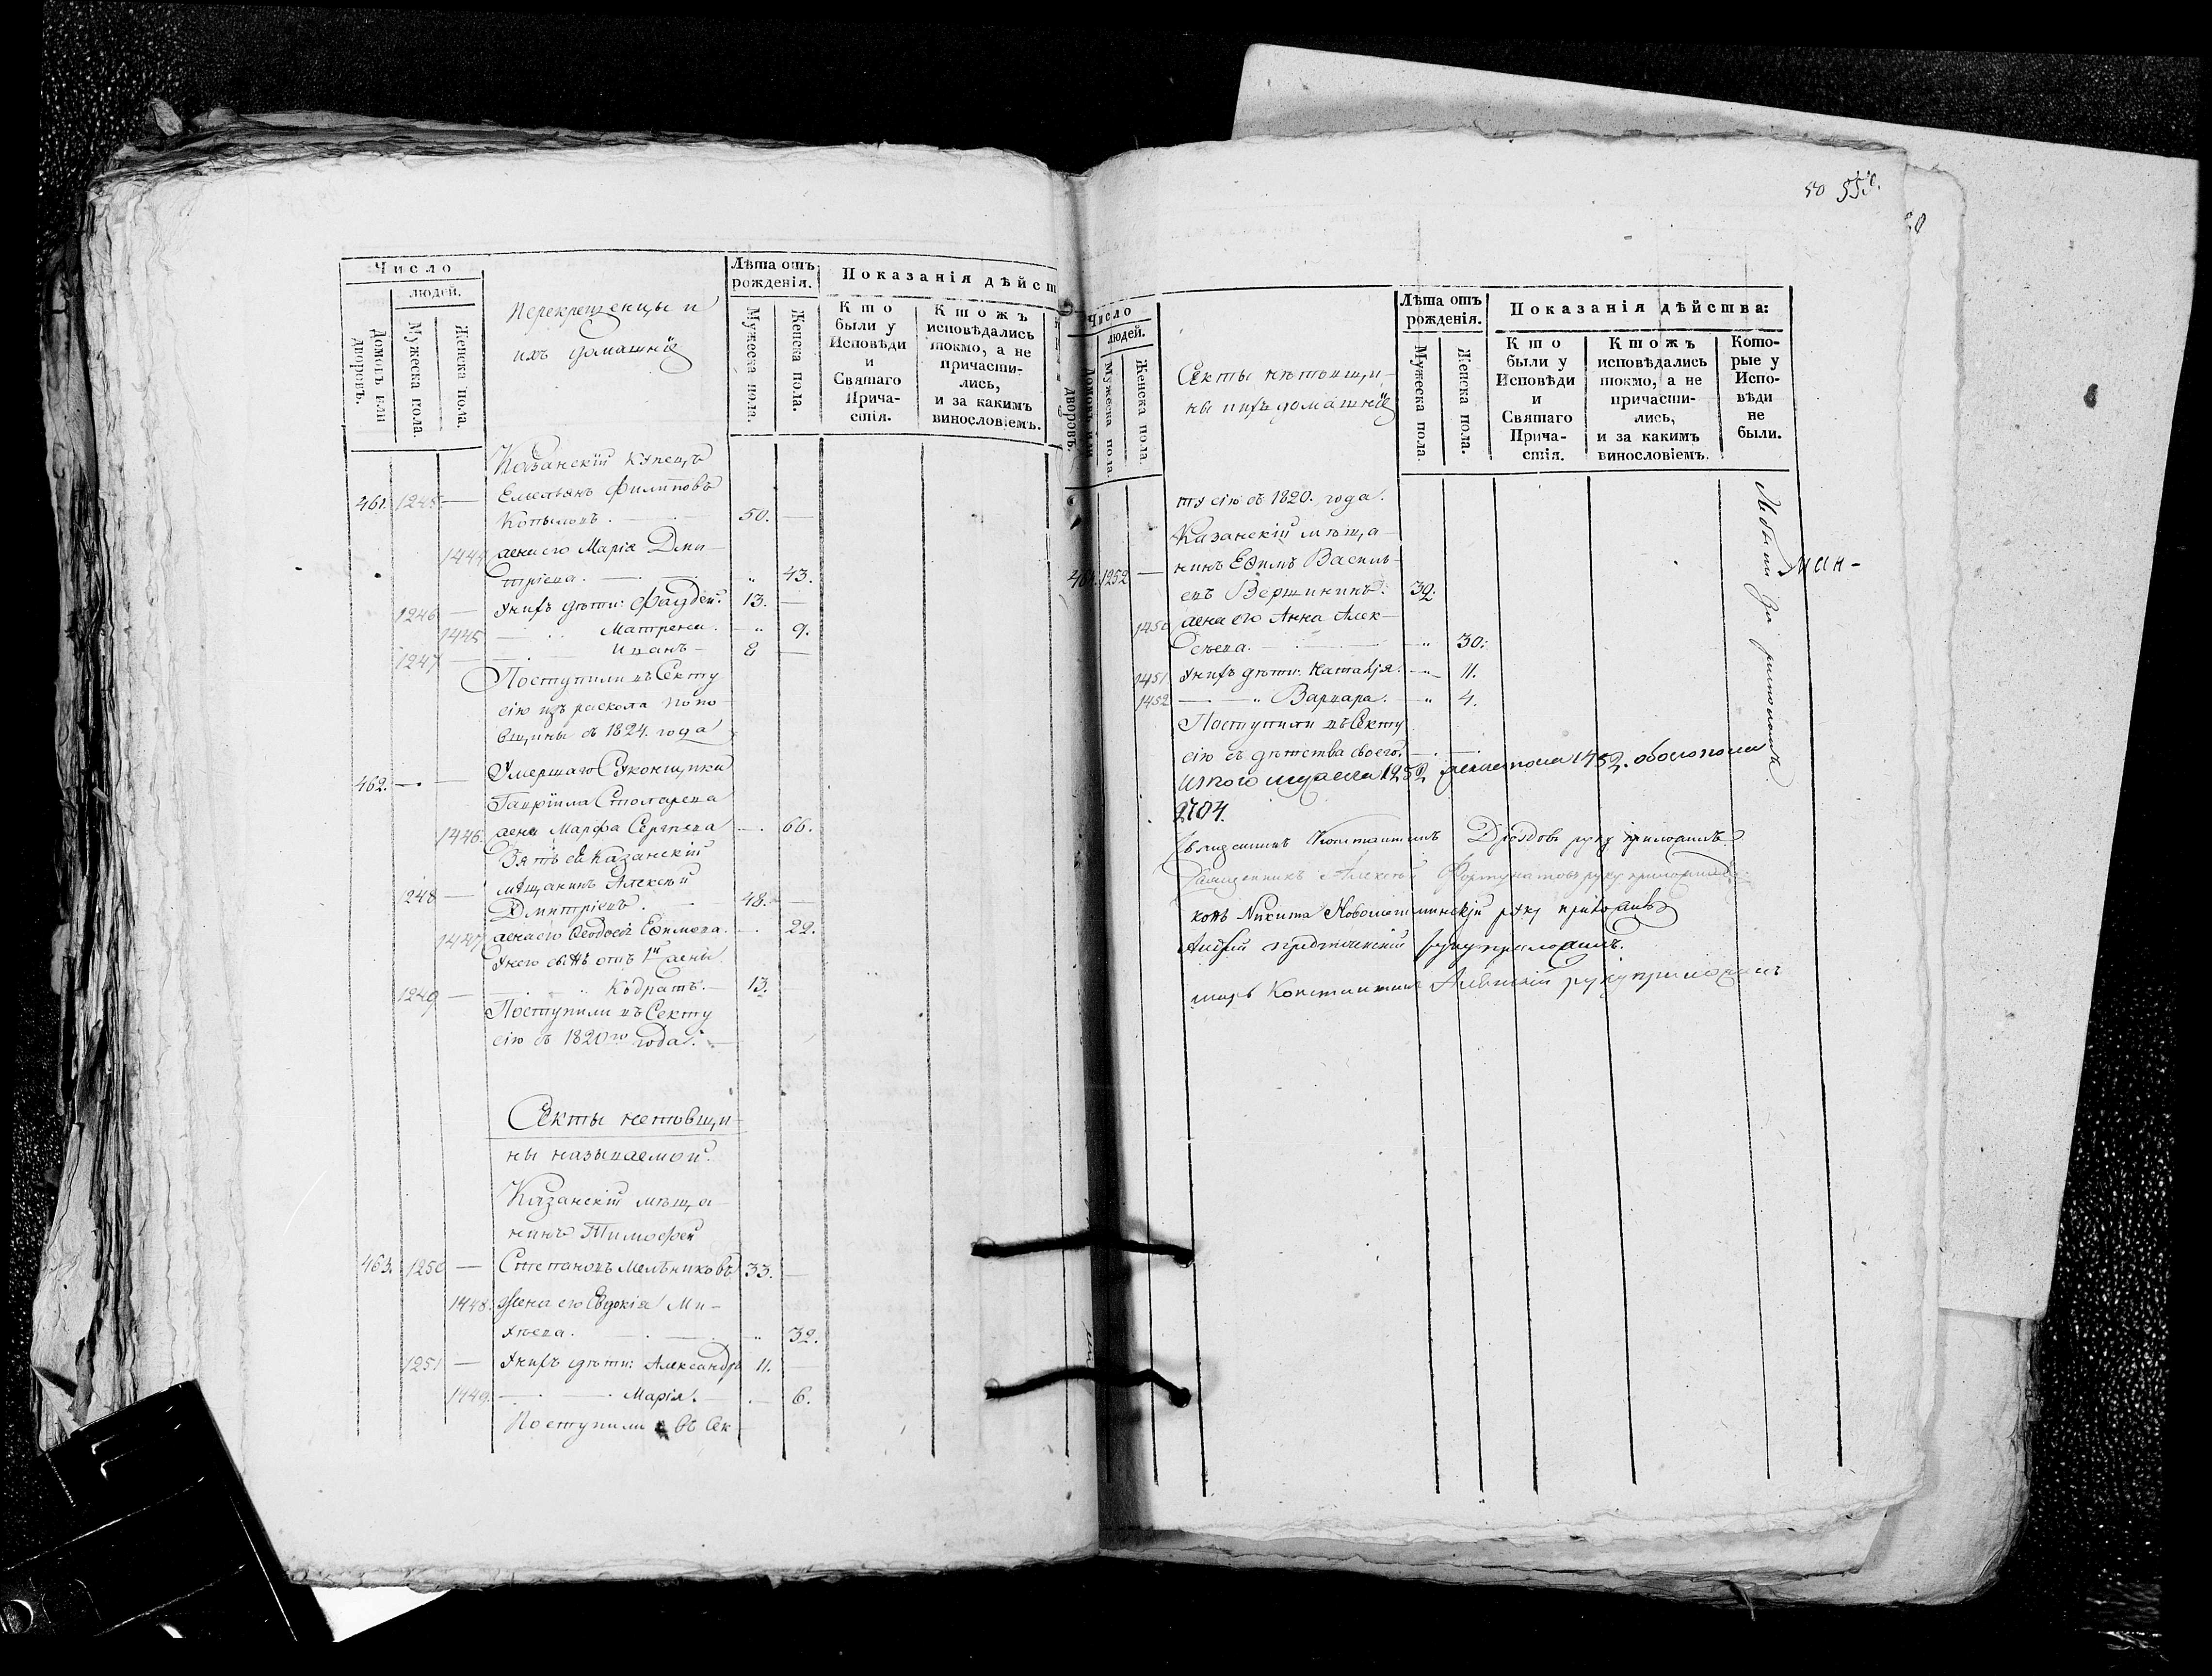 Число
людей.
Домовъ или дворовъ.
Мужеска пола.
Женска пола.
Перекрещенцы и
ихъ домашнiя
Лѣта отъ
рожденія.
Мужеска пола.
Женска пола.
Показанія дѣйст
Кто были у Исповѣди и Святаго Прича- стія.
Ктожъ исповѣдались токмо, а не причасти- лись, и за какимъ винословіемъ.
Казанскiй купецъ
461. 1245 — Емельянъ Филиповъ
Копыловъ. 50. —
1444 жена его Марiя Дми-
трiева. 43.
1246 — У нихъ дѣти: Фаддей. 13. —
1445 Матрена. 9.
1247 — Иванъ — 2 —
Поступили въ Секту
сiю изъ раскола попо-
вщины съ 1824. года
462. — — Умершаго Суконщика
Гаврiила Столярева
1446. жена Марфа Сергѣева — 66.
Зять ея Казанскiй
1248 — мѣщанинъ Алексѣй
Дмитрiевъ. 48. —
1447 жена его Ѳеодосья Ефимова. 22.
У него сынъ отъ 1й жены
1249 — Кодратъ. — 13.
Поступили въ Секту
сiю съ 1820го года.
Секты нетовщи-
ны называемой.
Казанскiй мѣща-
нинъ Тимофей
463. 1250 — Степановъ Мельниковъ 33. —
1448. Жена его Евдокiя Ми-
хѣева. 32.
1251 — У нихъ дѣти: Александръ 11. —
1449. Марiя. — 6.
Поступили въ Сек-
50 550.
Число
людей.
Домовъ или дворовъ.
Мужеска пола.
Женска пола.
Секты нѣтовщи-
ны и ихъ домашнiя
Лѣта отъ
рожденія.
Мужеска пола.
Женска пола.
Показанія дѣйства:
Кто были у Исповѣди и Святаго Прича- стія.
Ктожъ исповѣдались токмо, а не причасти- лись, и за какимъ винословіемъ.
Кото- рые у Испо- вѣди не были.
ту сiю съ 1820. года.
Казанскiй мѣща-
464. 1252 — нинъ Ефимъ Василь-
евъ Вершининъ. 39.
1450 жена его Анна Алек-
сѣева. 30.
1451 У нихъ дѣти: Наталiя. 11.
1452 Варвара. 4.
Поступили въ Секту
сiю съ дѣтства своего.
Итого мужеска 1252 женска пола 1452. обоего пола
2704.
Священникъ Константинъ Дроздовъ руку приложилъ
Священникъ Алексѣй Фортунатовъ руку приложилъ
конъ Никита Новошешминскiй руку приложилъ
Андрей Предтеченскiй руку приложилъ.
марь Константинъ руку приложилъ